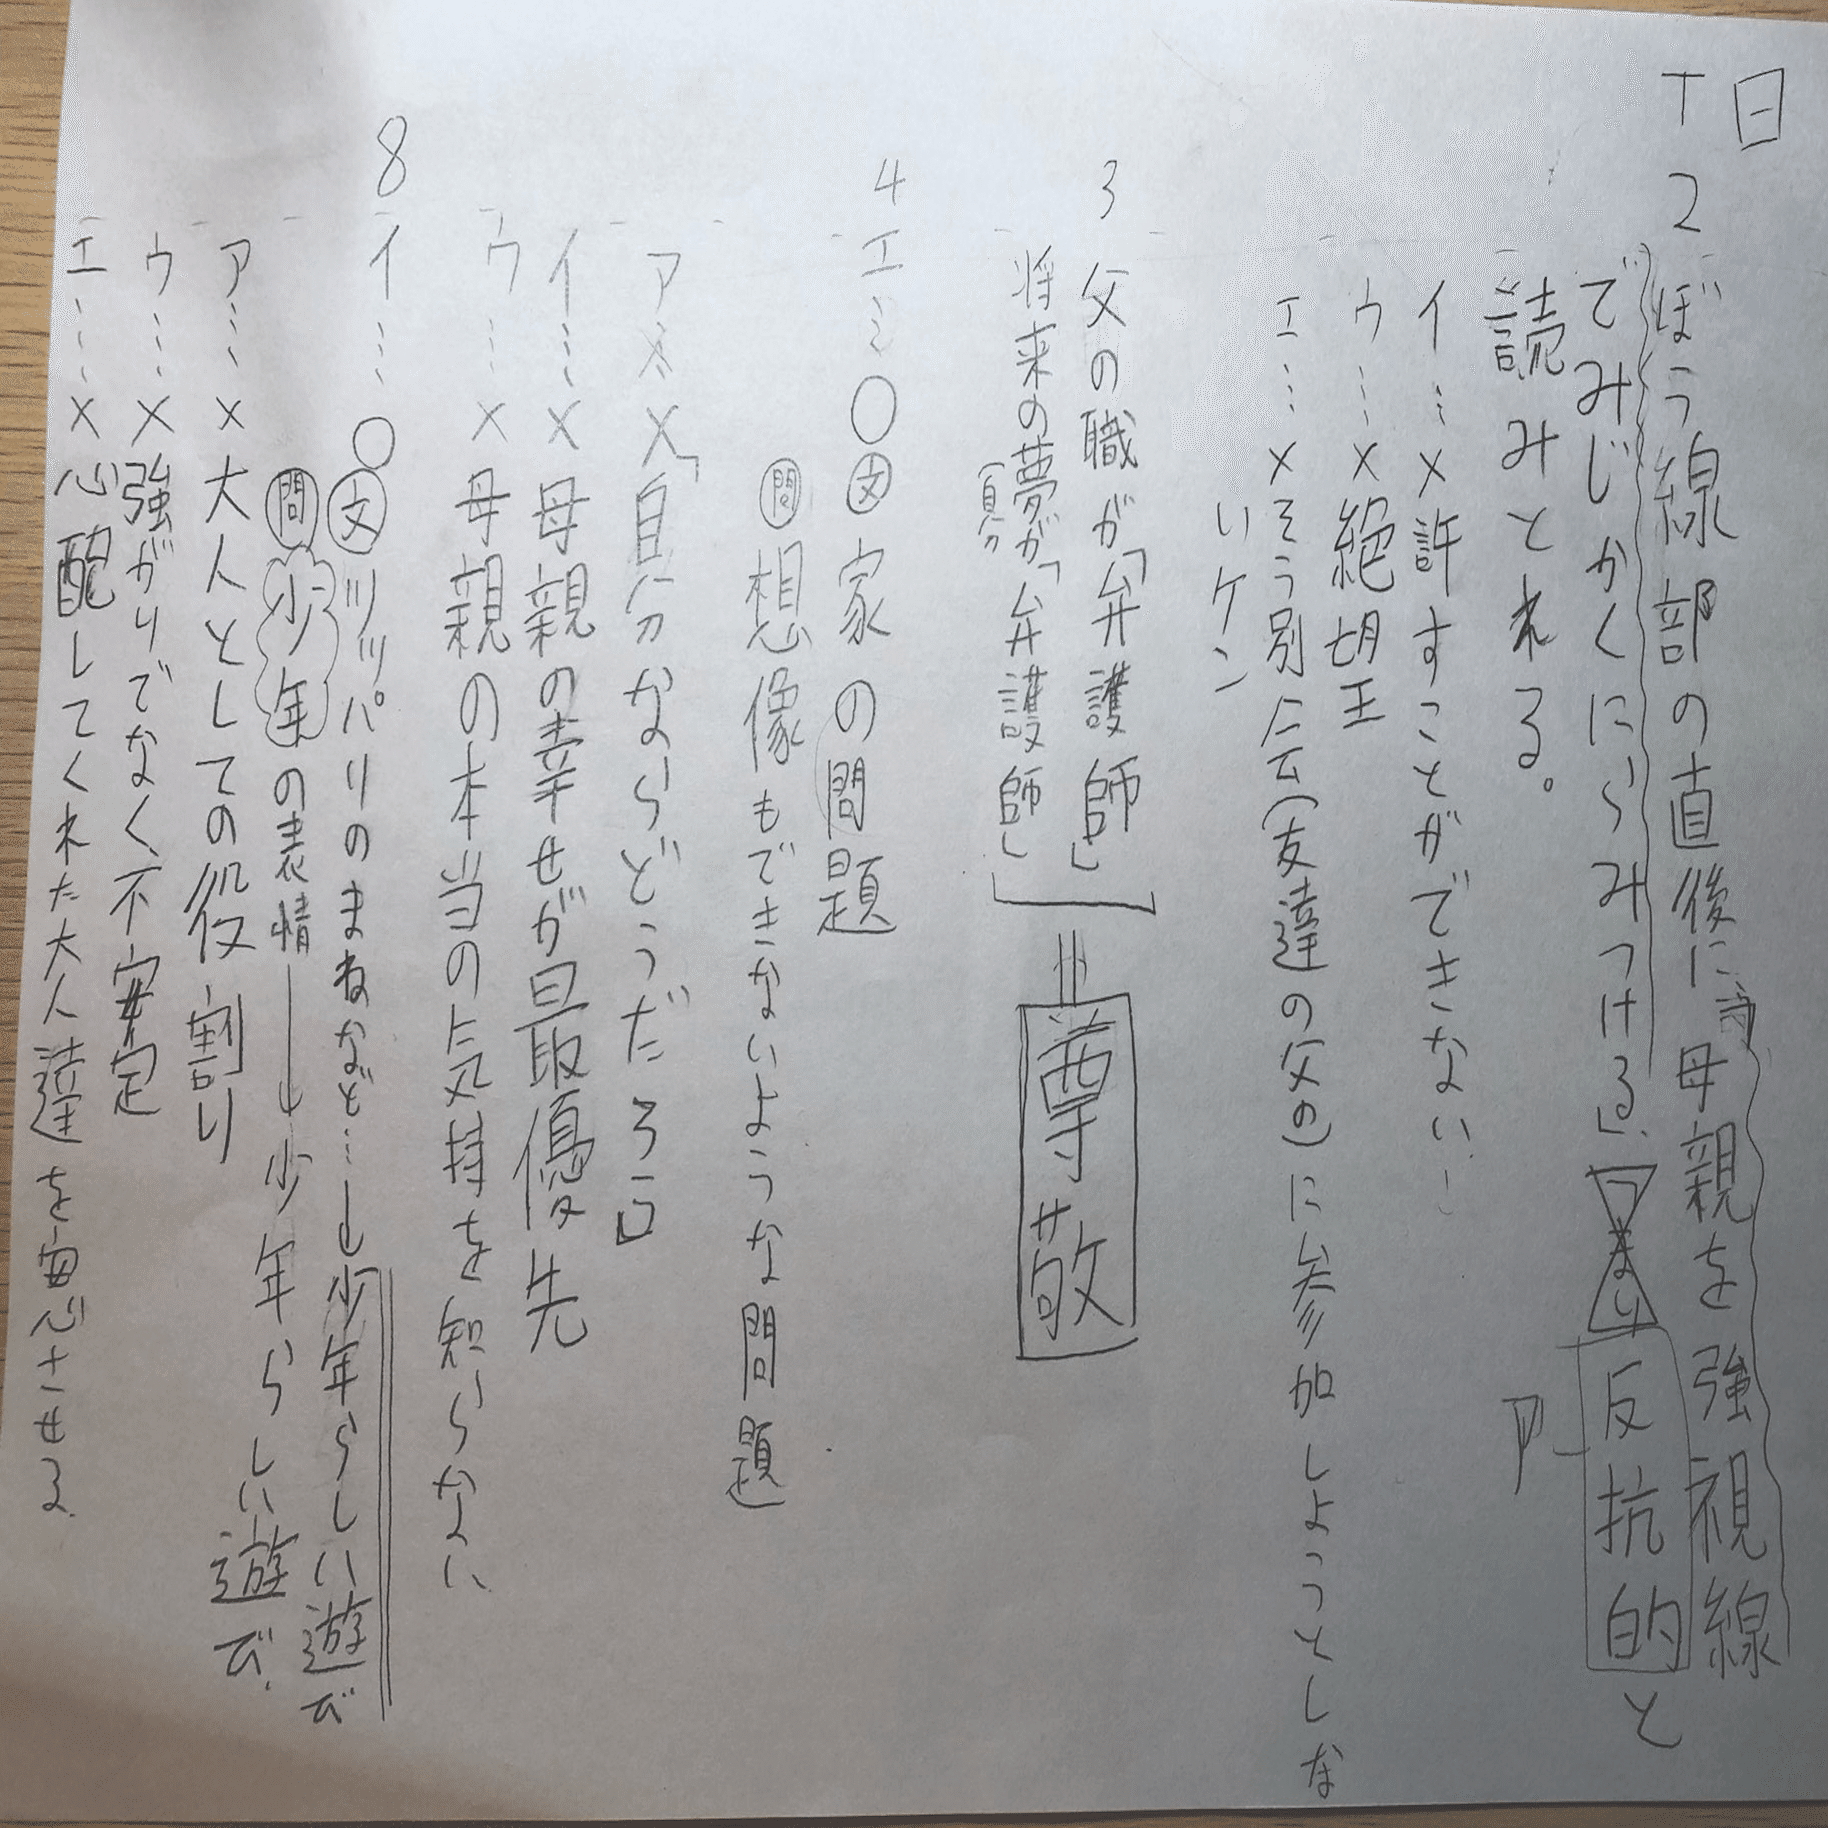 日
T
2 ぼう線部の直後に母親を強視線
でみじかくにらみつける」、つまり反抗的と
読みとれる。
ア
イ…×許すことができない
ウ…×絶望
エ…×そう別会(友達の父の)に参加しようとしな
いケン
3 父の職が「弁護師」
将来の夢が「弁護師」
(自分
=尊敬
4 エ…○文家の問題
問想像もできないような問題
ア…×「自分ならどうだろう」
イ…×母親の幸せが最優先
ウ…×母親の本当の気持を知らない
8 イ…○文ツッパリのまねなど…→少年らしい遊び
問少年の表情→少年らしい遊び
ア…×大人としての役割り
ウ…×強がりでなく不安定
エ…×心配してくれた大人達を安心させる